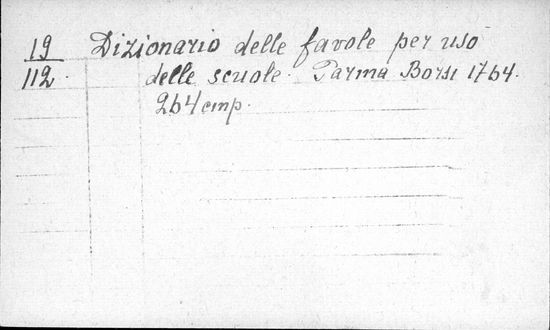 19 Dizionario delle favole per uso
112. delle scuole. Parma Borsi 1764.
264 стр.